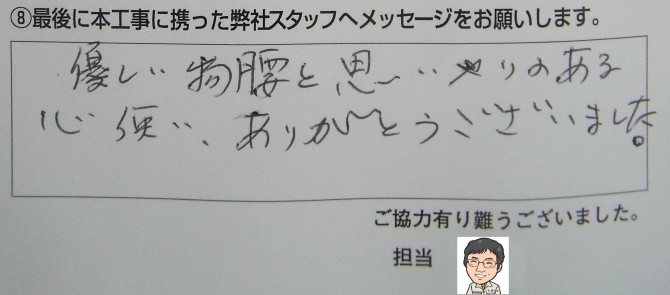 ⑧最後に本工事に携った弊社スタッフへメッセージをお願いします。
優しい物腰と思いやりのある
心使い、ありがとうございました。
ご協力有り難うございました。
担当